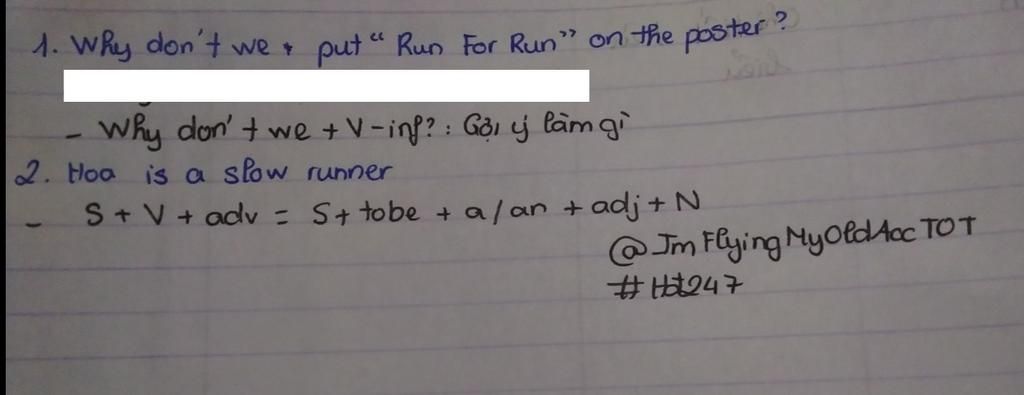 1. Why don't we + put "Run For Run" on the poster?
- Why don't we + V-inf? : Gợi ý làm gì
2. Hoa is a slow runner
- S + V + adv = S + tobe + a/an + adj + N
@ImFlyingMyOldAccTOT
#Hbt247